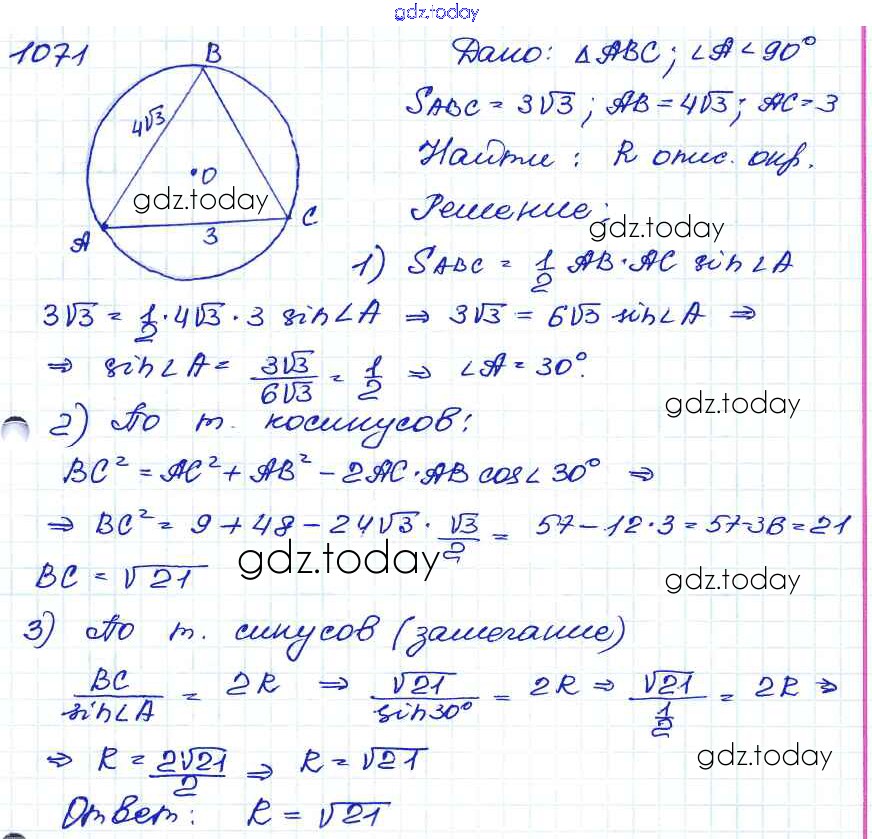 gdz.today
1071
B
Дано: ΔABC; ∠A<90°
4√3
S_ABC = 3√3; AB = 4√3; AC = 3
Найти: R опис. окр.
O
gdz.today
Решение:
gdz.today
A
3
C
1) S_ABC = 1/2 AB · AC sin∠A
3√3 = 1/2 · 4√3 · 3 sin∠A ⇒ 3√3 = 6√3 sin∠A ⇒
⇒ sin∠A = 3√3/6√3 = 1/2 ⇒ ∠A = 30°.
gdz.today
2) По т. косинусов:
BC² = AC² + AB² - 2AC · AB cos∠30° ⇒
⇒ BC² = 9 + 48 - 24√3 · √3/2 = 57 - 12 · 3 = 57-36 = 21
gdz.today
BC = √21
gdz.today
3) По т. синусов (замечание)
BC/sin∠A = 2R ⇒ √21/sin30° = 2R ⇒ √21/(1/2) = 2R ⇒
⇒ R = 2√21/2 ⇒ R = √21
gdz.today
Ответ: R = √21